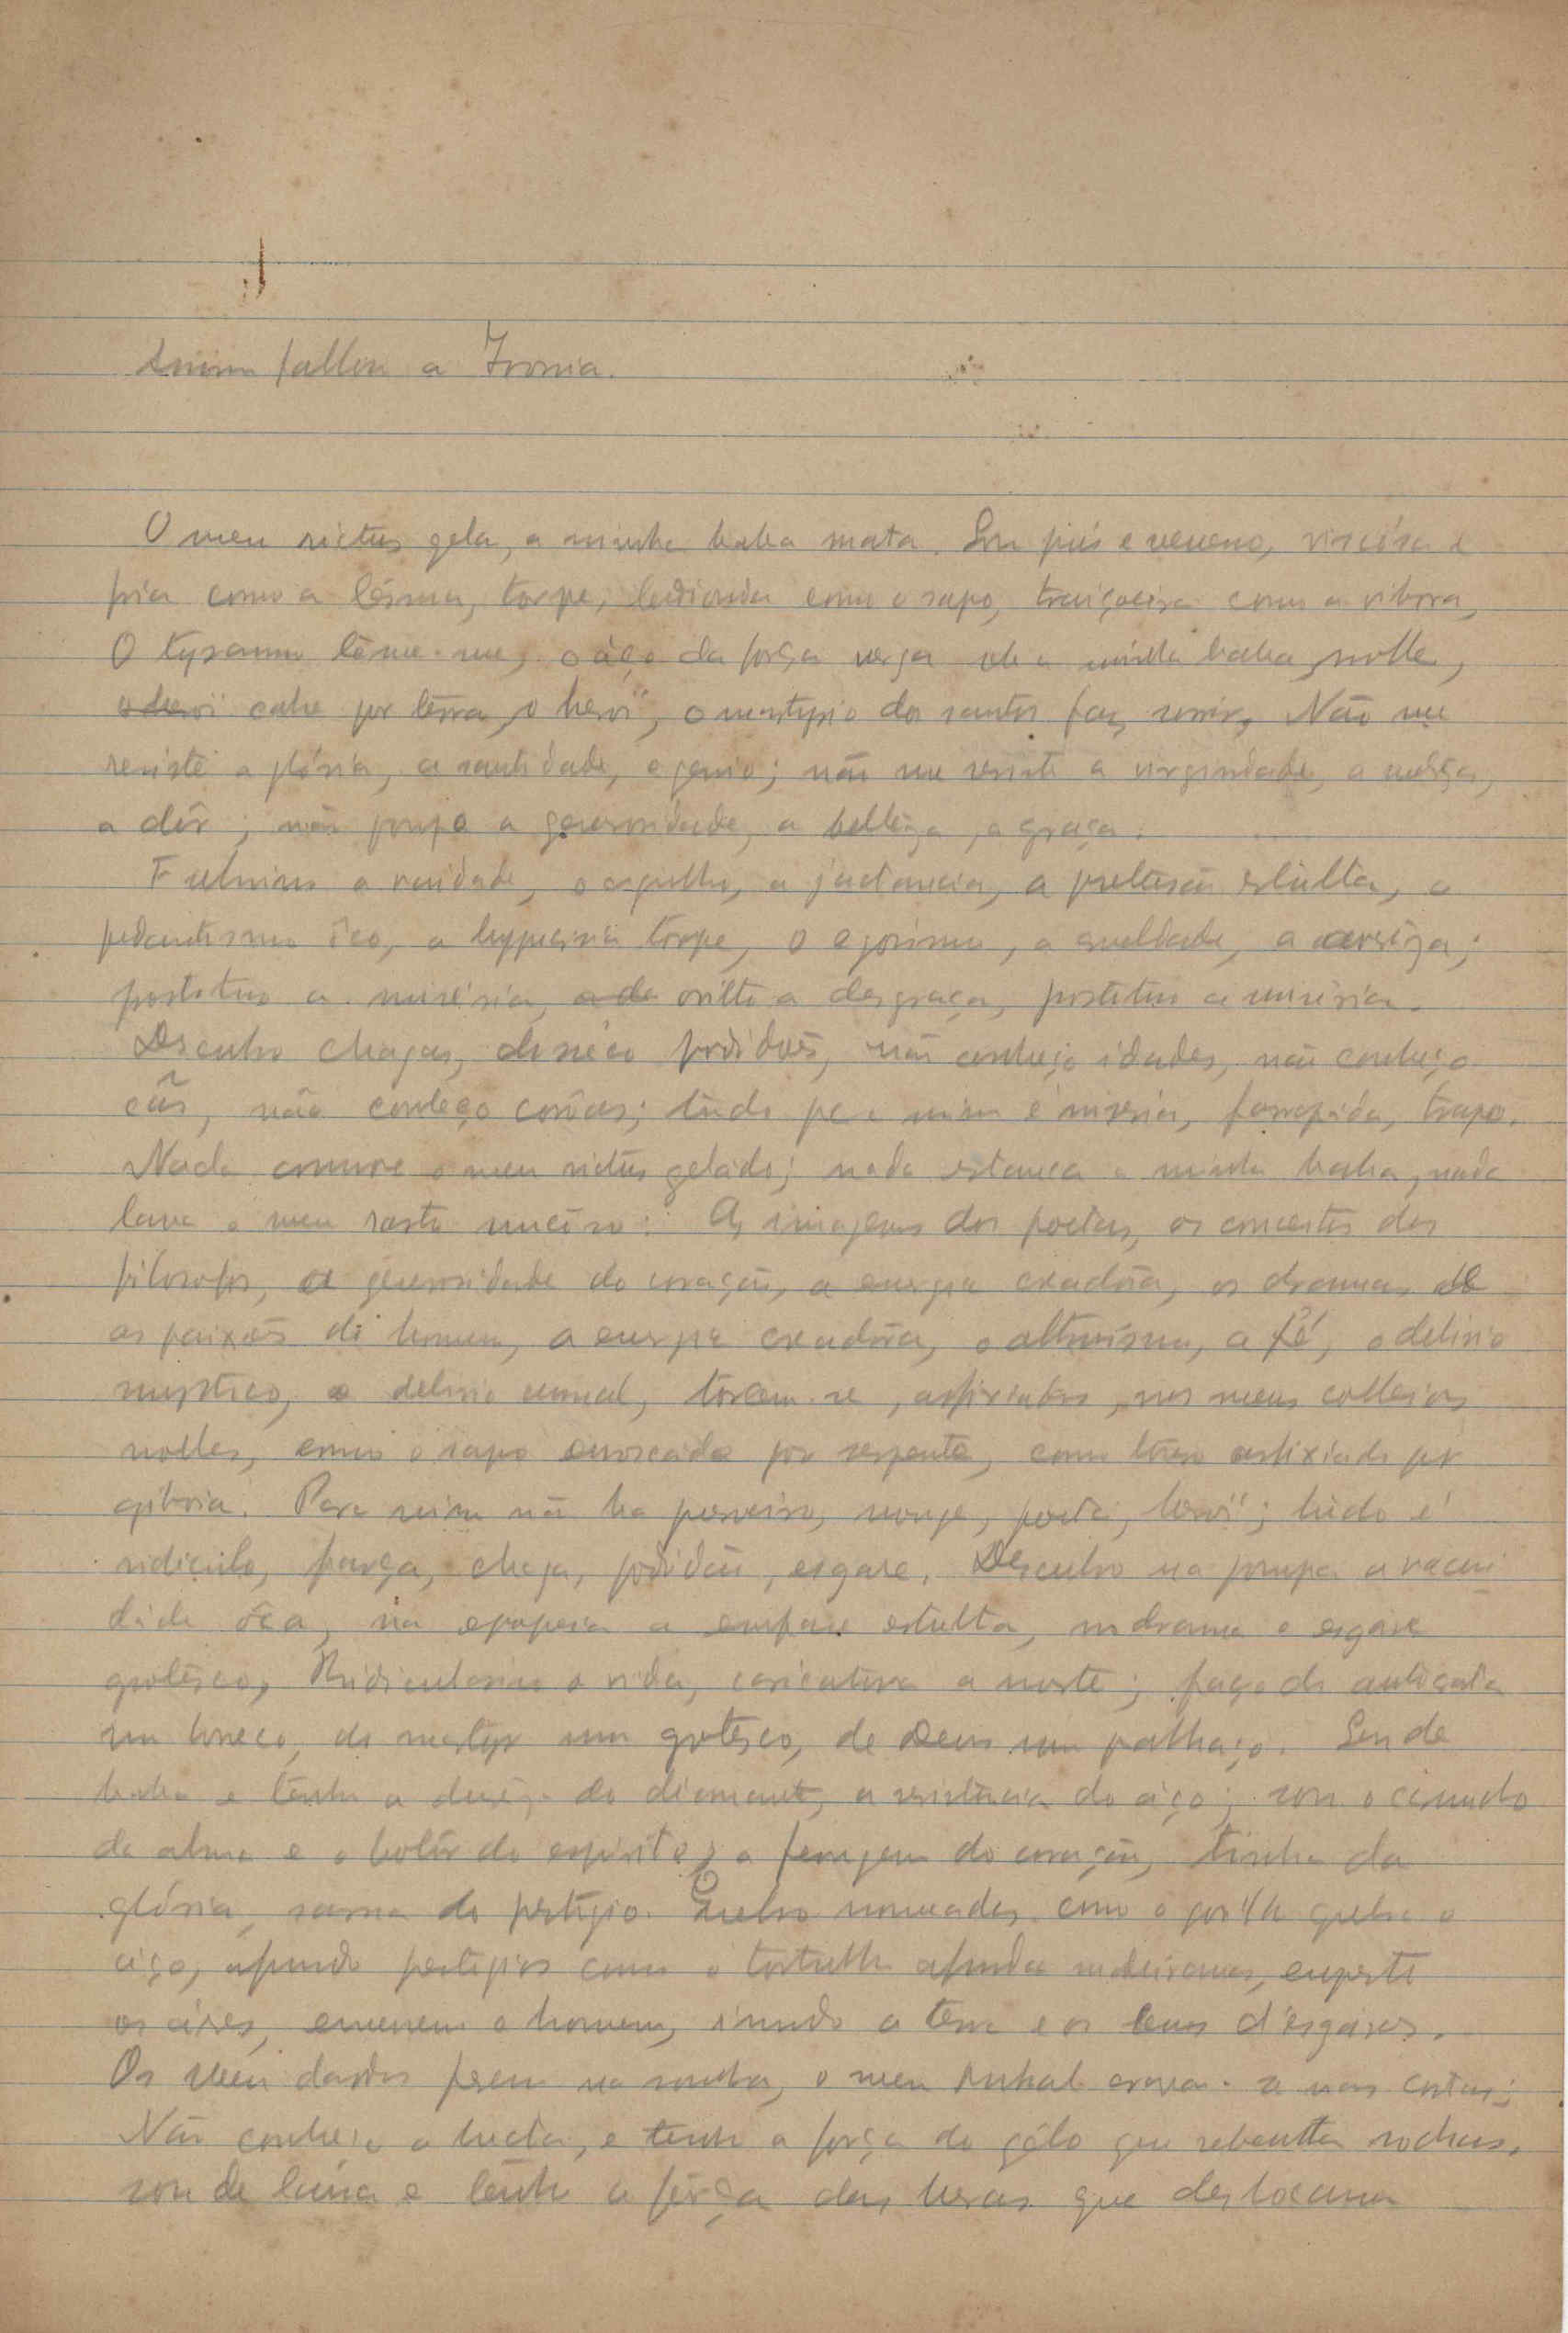 Assim fallou a Ironia.
O meu rictus gela, a minha baba mata. Sou pús e veneno, viscósa e
fria como a lésma, torpe, hedionda como o sapo, traiçoeira como a vibora,
O tyranno tême-me, o áço da força verga sob a minha baba, molle,
cahe por terra, o heroï, o martyrio dos santos faz sorrir, Não me
resiste a glória, a santidade, o genio; não me resiste a virgindade, a
a dôr; não poupo a generosidade, a bellêza, a graça.
Fulmino a vaidade, o orgulho, a jactancia, a pretensão estulta, o
pedantismo ôco, a hypocrisia torpe, o egoismo, a crueldade, a
prostituo a miséria, a desgraça, prostituo a miséria.
Descubro chagas, podridões, não conheço idades, não conheço
cãs, não conheço corôas; tudo para mim é miseria, farrapáda, trapo.
Nada commove o meu rictus gelado; nada estanca a minha baba, nada
lava o meu rasto As imagens dos poetas, os conceitos dos
filosofos, a generosidade do coração, a energia creadôra, os dramas
as paixões do homem, a energia creadôra, o altruismo, a fé, o delirio
mystico, o delirio sexual, torcem-se, asfixiados, nos meus colleios
molles, como o sapo enroscado por serpente, como touro asfixiado por
giboia. Para mim não ha monge, poeta, heroï; tudo é
ridiculo, farça, chaga, podridão, esgare. Descubro na pompa a vacui
dade ôca, na epopeia a emfase estulta, no drama o esgare
grotêsco, Ridicularizo a vida, caricaturo a morte; faço do
um boneco, do martyr um grotesco, de Deus um palhaço. Sou de
baba e tenho a durêza do diamante, a resistencia do áço; sou o
da alma e o bolôr do espirito, a ferrugem do coração, tinha da
glória, sarna do prestigio. Quebro nomeadas como o gorilla quebra o
áço, afundo prestigios como o tortulho afunda madeirames, empesto
os áres, enveneno o homem, inundo a terra e os ceus d'esgáres.
Os meus dardos ferem na sombra, o meu punhal crava-se nas costas;
Não conheço a lucta, e tenho a força do gêlo que rebenta rochas,
sou de e tenho a fôrça das heras que deslocam